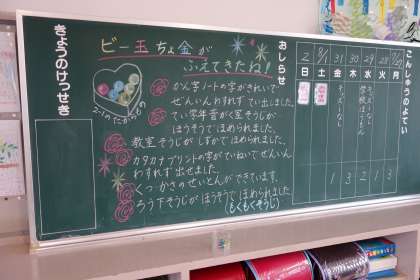 こんしゅうのよてい
7/27 月
28 火
29 水
30 木
31 金
8/1 土
2 日
学校
1
3
2
1
3
おしらせ
ビー玉ちょ金が
ふえてきたね!
2-1のたからもの
かん字ノートの字がきれいで
ぜんいんわすれず出ていました。
てい学年音がく室そうじが
ほうそうでほめられました。
教室そうじがしずかでほめられました。
カタカナプリントの字がていねいでぜんいん
わすれず出せました。
くつ・かさのせいとんができています。
ろう下そうじがほうそうでほめられました。
(もくもくそうじ)
きょうのけっせき